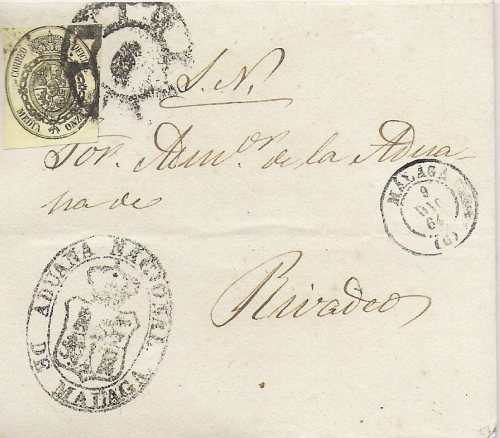 CORREO OFICIAL
MEDIA ONZA
S. N.
Sor. Admor. de la Adua-
na de
MALAGA
9
DIC
64
(6)
Rivadeo
ADUANA NACIONAL
DE MALAGA